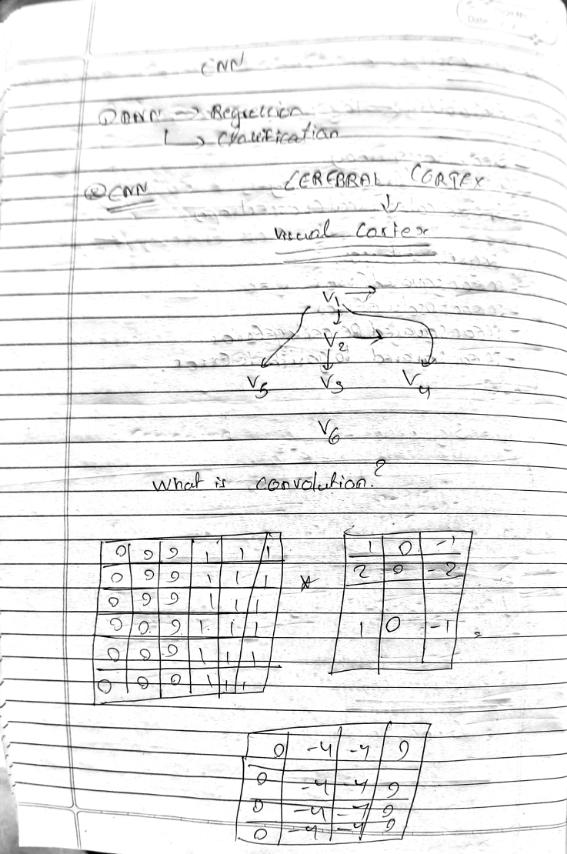 CNN
① ANN → Regression
↳ Classification
② CNN CEREBRAL CORTEX
↓
Visual Cortex
V1 →
V2 →
V5 V3 V4
V6
What is convolution?
0 0 0 1 1 1 1 0 -1
0 0 0 1 1 1 * 2 0 -2
0 0 0 1 1 1
0 0 0 1 1 1 1 0 -1
0 0 0 1 1 1
0 0 0 1 1 1
0 -4 -4 0
0 -4 -4 0
0 -4 -4 0
0 -4 -4 0